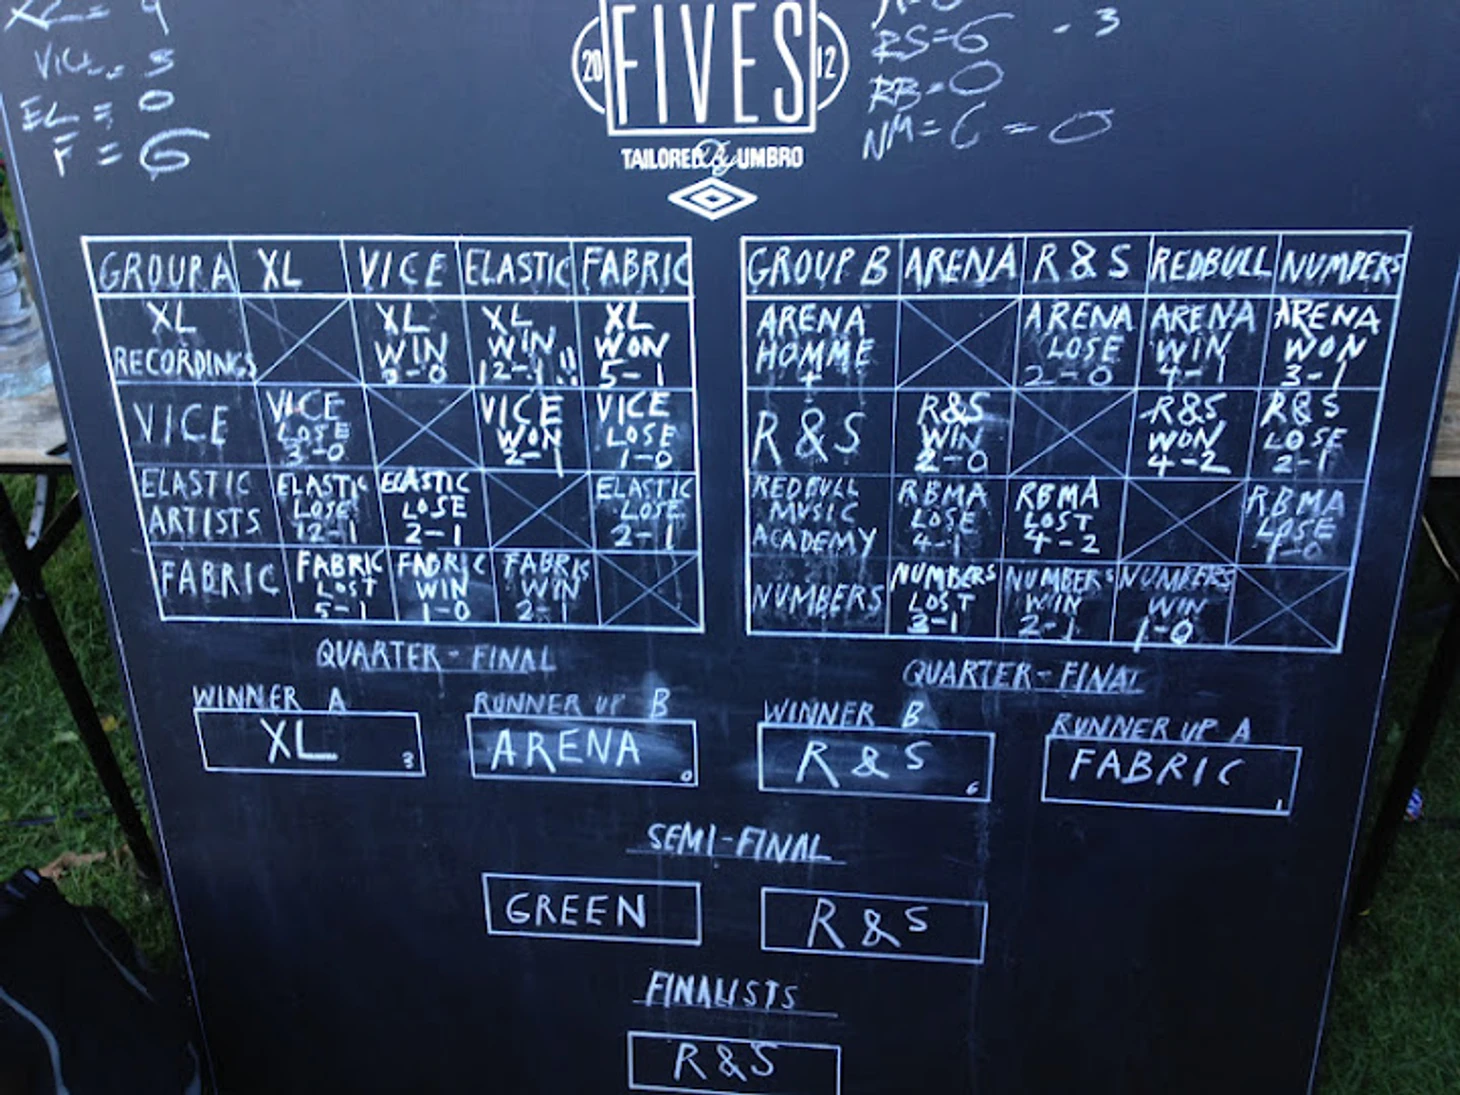 XL = 9
VICE = 3
EL = 0
F = 6
20 FIVES 12
TAILORED By UMBRO
RS=6 - 3
RB=0
NM=6 = 0
GROUP A XL VICE ELASTIC FABRIC
XL RECORDINGS XL WIN 3-0 XL WIN 12-1!! XL WON 5-1
VICE VICE LOSE 3-0 VICE WON 2-1 VICE LOSE 1-0
ELASTIC ARTISTS ELASTIC LOSE 12-1 ELASTIC LOSE 2-1 ELASTIC LOSE 2-1
FABRIC FABRIC LOST 5-1 FABRIC WIN 1-0 FABRIC WIN 2-1
GROUP B ARENA R&S REDBULL NUMBERS
ARENA HOMME + ARENA LOSE 2-0 ARENA WIN 4-1 ARENA WON 3-1
R&S R&S WIN 2-0 R&S WON 4-2 R&S LOSE 2-1
REDBULL MUSIC ACADEMY RBMA LOSE 4-1 RBMA LOST 4-2 RBMA LOSE 1-0
NUMBERS NUMBERS LOST 3-1 NUMBERS WIN 2-1 NUMBERS WIN 1-0
QUARTER-FINAL
WINNER A RUNNER UP B
XL 3 ARENA 0
QUARTER-FINAL
WINNER B RUNNER UP A
R&S 6 FABRIC 1
SEMI-FINAL
GREEN R&S
FINALISTS
R&S